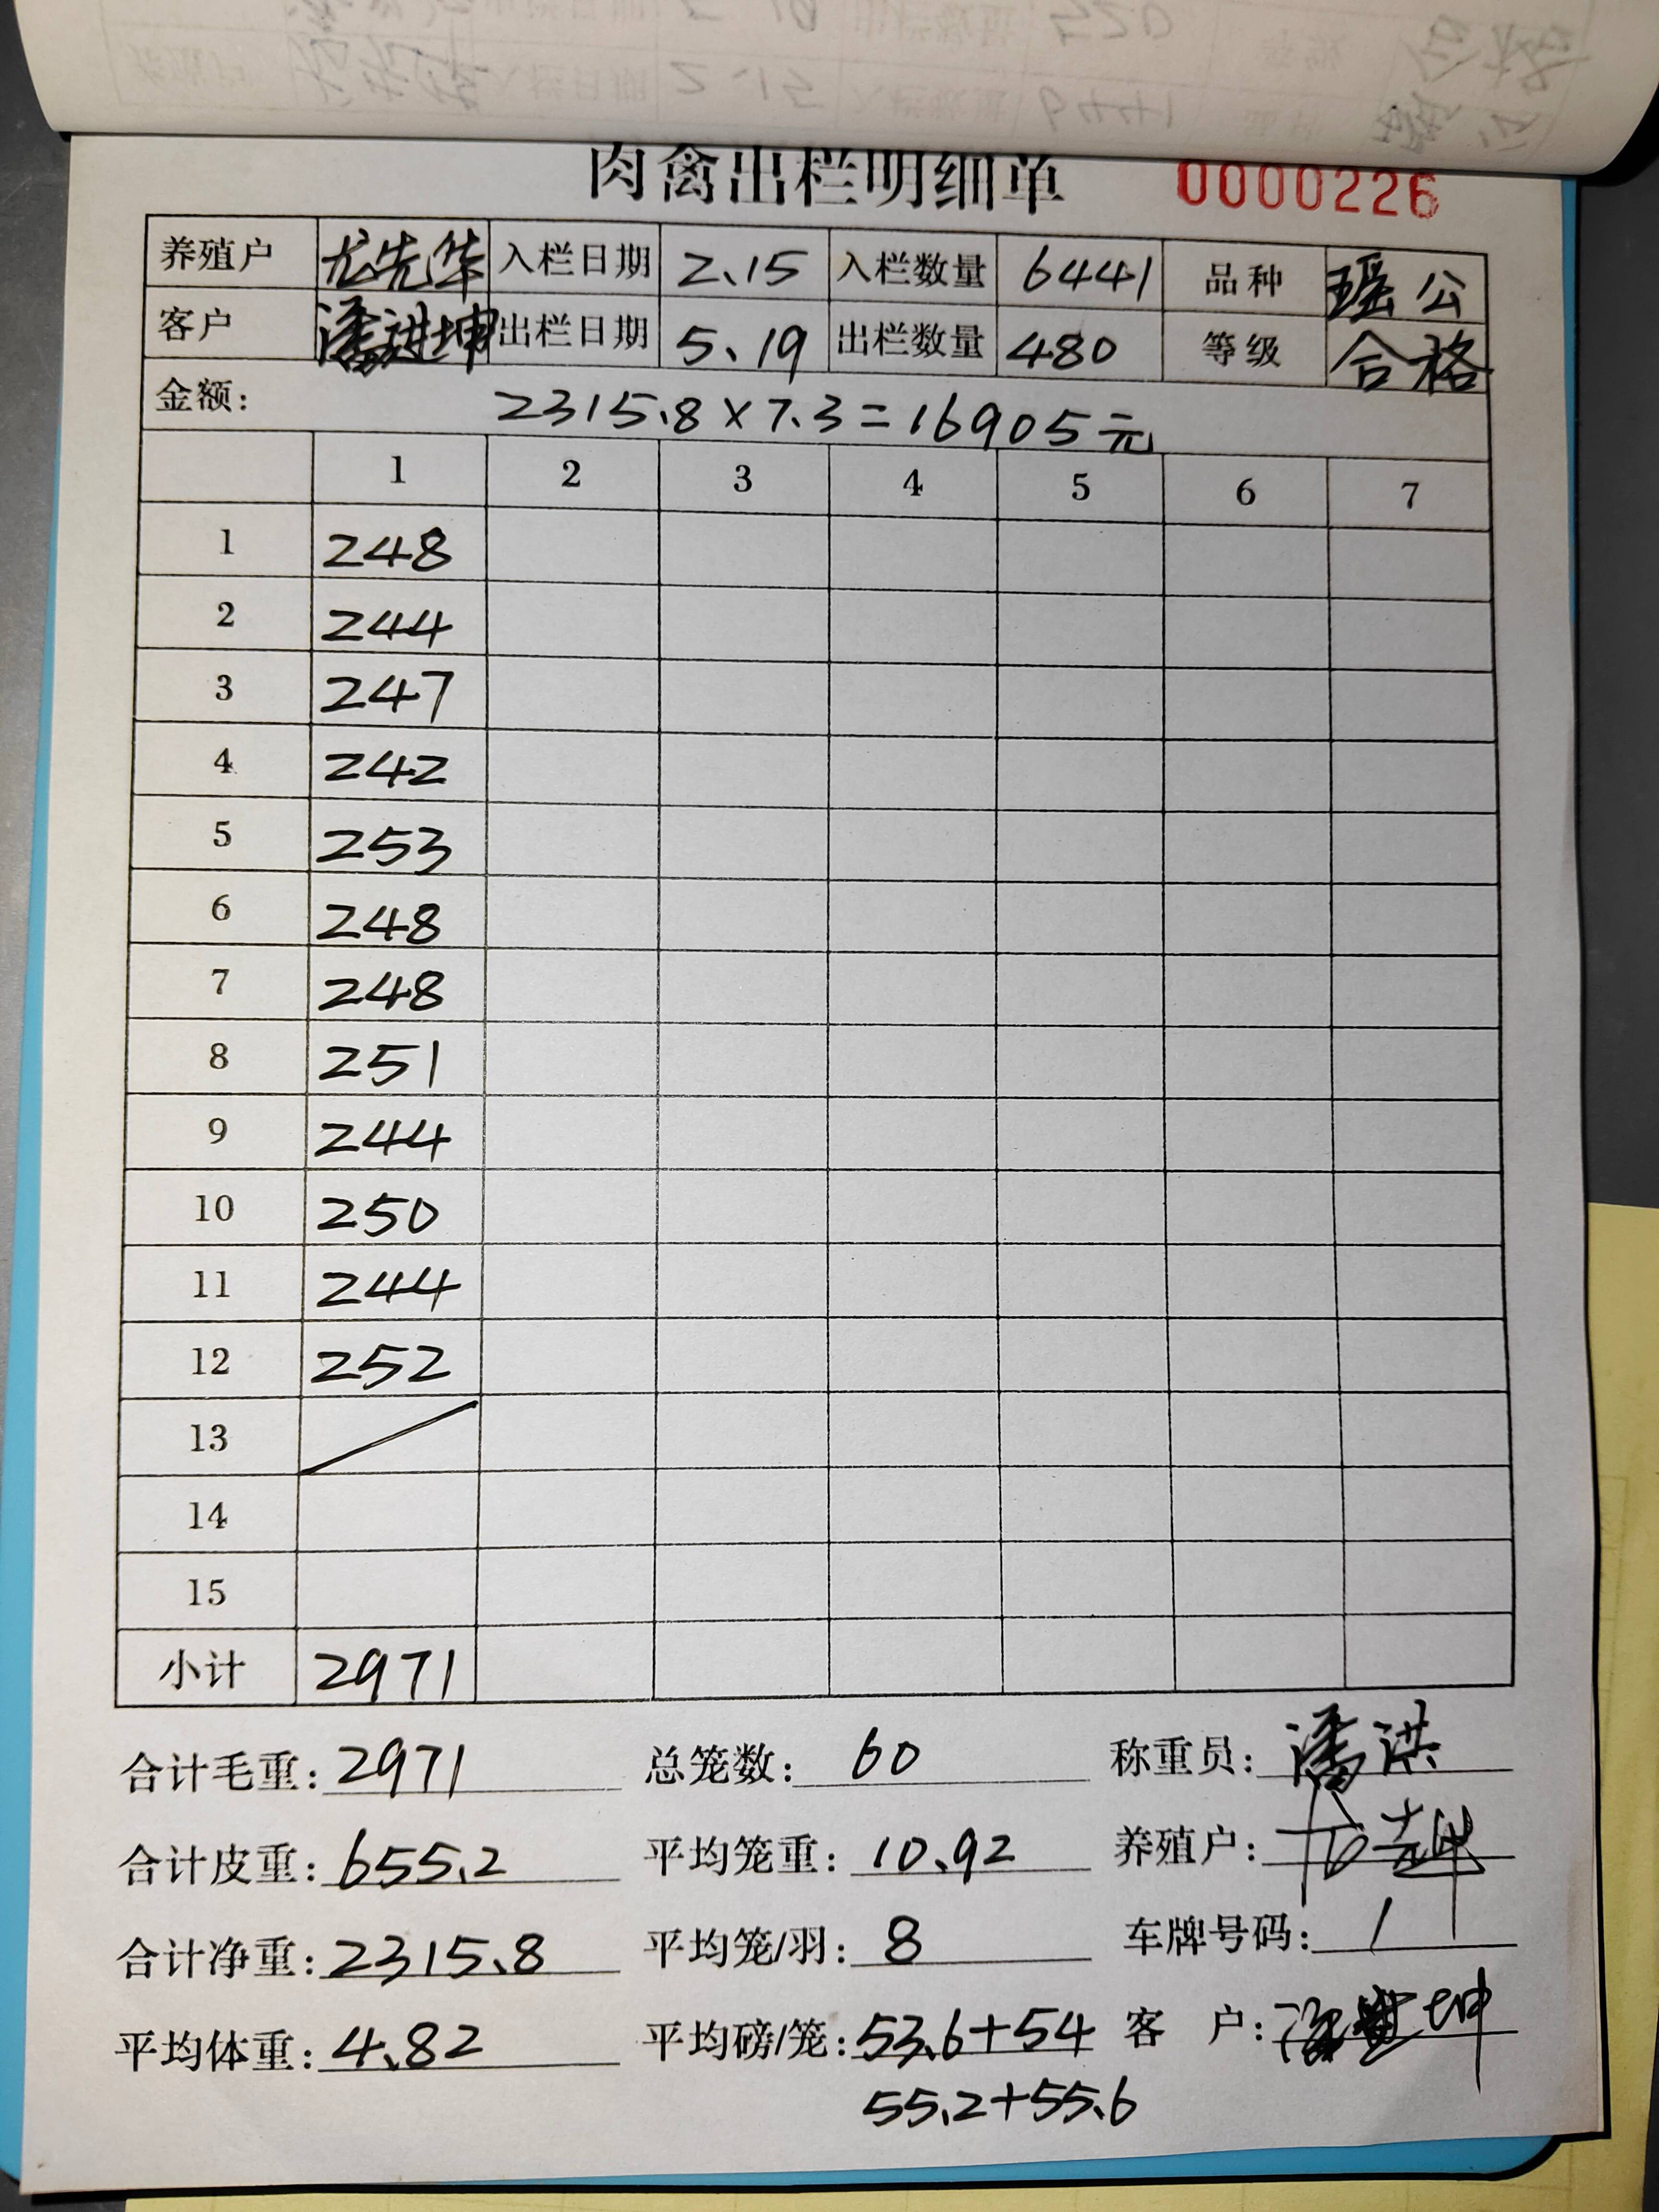 肉禽出栏明细单 0000226
养殖户 尤先华 入栏日期 2、15 入栏数量 6441 品种 瑶公
客户 潘进坤 出栏日期 5、19 出栏数量 480 等级 合格
金额： 2315.8×7.3=16905元
1 2 3 4 5 6 7
1 248
2 244
3 247
4 242
5 253
6 248
7 248
8 251
9 244
10 250
11 244
12 252
13
14
15
小计 2971
合计毛重：2971 总笼数：60 称重员：潘洪
合计皮重：655.2 平均笼重：10.92 养殖户：
合计净重：2315.8 平均笼/羽：8 车牌号码：/
平均体重：4.82 平均磅/笼：53.6+54 客 户：
55.2+55.6